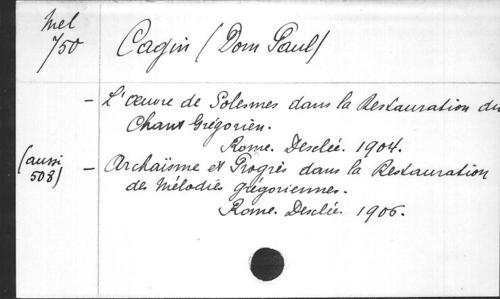 Mel
750
Cagin (Dom Paul)
- L'œuvre de Solesmes dans la Restauration du
Chant Grégorien.
Rome. Desclée. 1904.
(aussi
508)
- Archaïsme et Progrès dans la Restauration
des Mélodies grégoriennes.
Rome. Desclée. 1906.